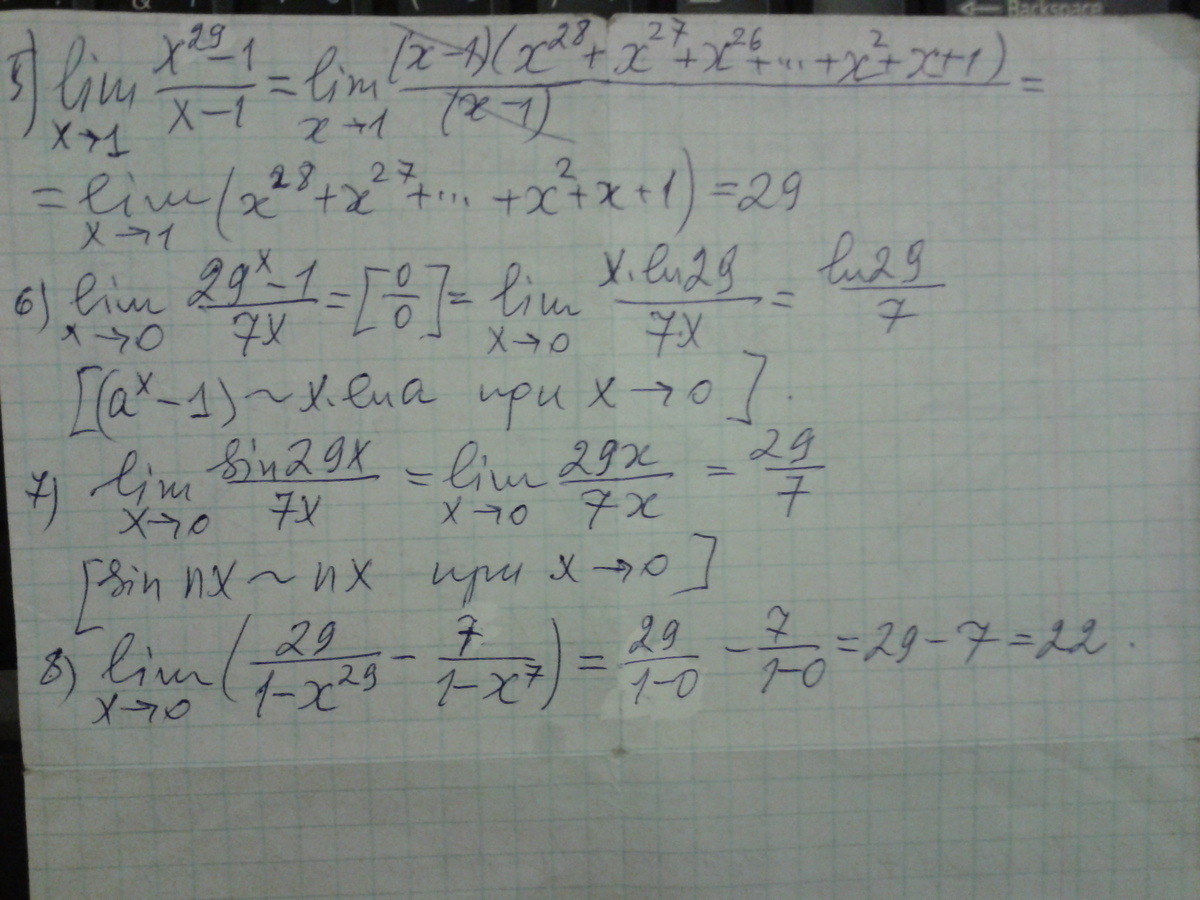 Backspace
5) lim x→1 (x^29 − 1)/(x − 1) = lim x→1 ((x − 1)(x^28 + x^27 + x^26 + ... + x^2 + x + 1))/(x − 1) =
= lim x→1 (x^28 + x^27 + ... + x^2 + x + 1) = 29
6) lim x→0 (29^x − 1)/(7x) = [0/0] = lim x→0 (x·ln29)/(7x) = ln29/7
[(a^x − 1) ~ x·lna при x → 0].
7) lim x→0 (sin29x)/(7x) = lim x→0 (29x)/(7x) = 29/7
[sin nx ~ nx при x → 0]
8) lim x→0 (29/(1−x^29) − 7/(1−x^7)) = 29/(1−0) − 7/(1−0) = 29 − 7 = 22.